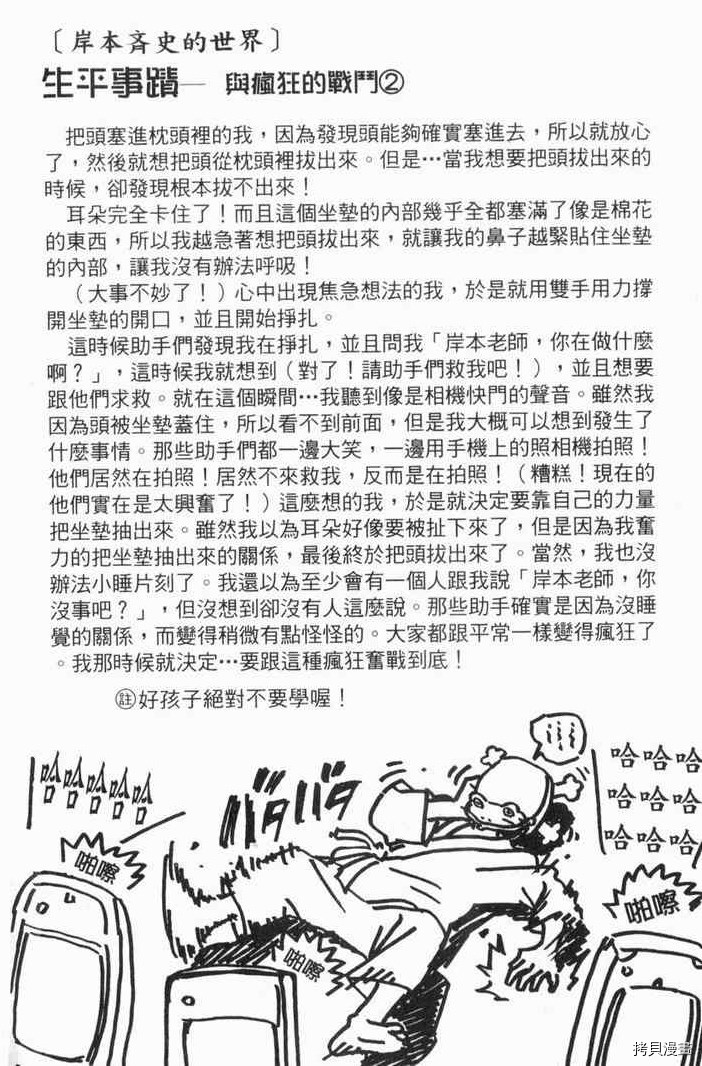 〔岸本斉史的世界〕
生平事蹟— 與瘋狂的戰鬥②
把頭塞進枕頭裡的我，因為發現頭能夠確實塞進去，所以就放心
了，然後就想把頭從枕頭裡拔出來。但是…當我想要把頭拔出來的
時候，卻發現根本拔不出來！
耳朵完全卡住了！而且這個坐墊的內部幾乎全都塞滿了像是棉花
的東西，所以我越急著想把頭拔出來，就讓我的鼻子越緊貼住坐墊
的內部，讓我沒有辦法呼吸！
（大事不妙了！）心中出現焦急想法的我，於是就用雙手用力撐
開坐墊的開口，並且開始掙扎。
這時候助手們發現我在掙扎，並且問我「岸本老師，你在做什麼
啊？」，這時候我就想到（對了！請助手們救我吧！），並且想要
跟他們求救。就在這個瞬間…我聽到像是相機快門的聲音。雖然我
因為頭被坐墊蓋住，所以看不到前面，但是我大概可以想到發生了
什麼事情。那些助手們都一邊大笑，一邊用手機上的照相機拍照！
他們居然在拍照！居然不來救我，反而是在拍照！（糟糕！現在的
他們實在是太興奮了！）這麼想的我，於是就決定要靠自己的力量
把坐墊抽出來。雖然我以為耳朵好像要被扯下來了，但是因為我奮
力的把坐墊抽出來的關係，最後終於把頭拔出來了。當然，我也沒
辦法小睡片刻了。我還以為至少會有一個人跟我說「岸本老師，你
沒事吧？」，但沒想到卻沒有人這麼說。那些助手確實是因為沒睡
覺的關係，而變得稍微有點怪怪的。大家都跟平常一樣變得瘋狂了
。我那時候就決定…要跟這種瘋狂奮戰到底！
㊟好孩子絕對不要學喔！
哈哈哈哈
バタバタ
哈哈哈
哈哈哈
哈哈哈
啪嚓
啪嚓
啪嚓
拷貝漫畫